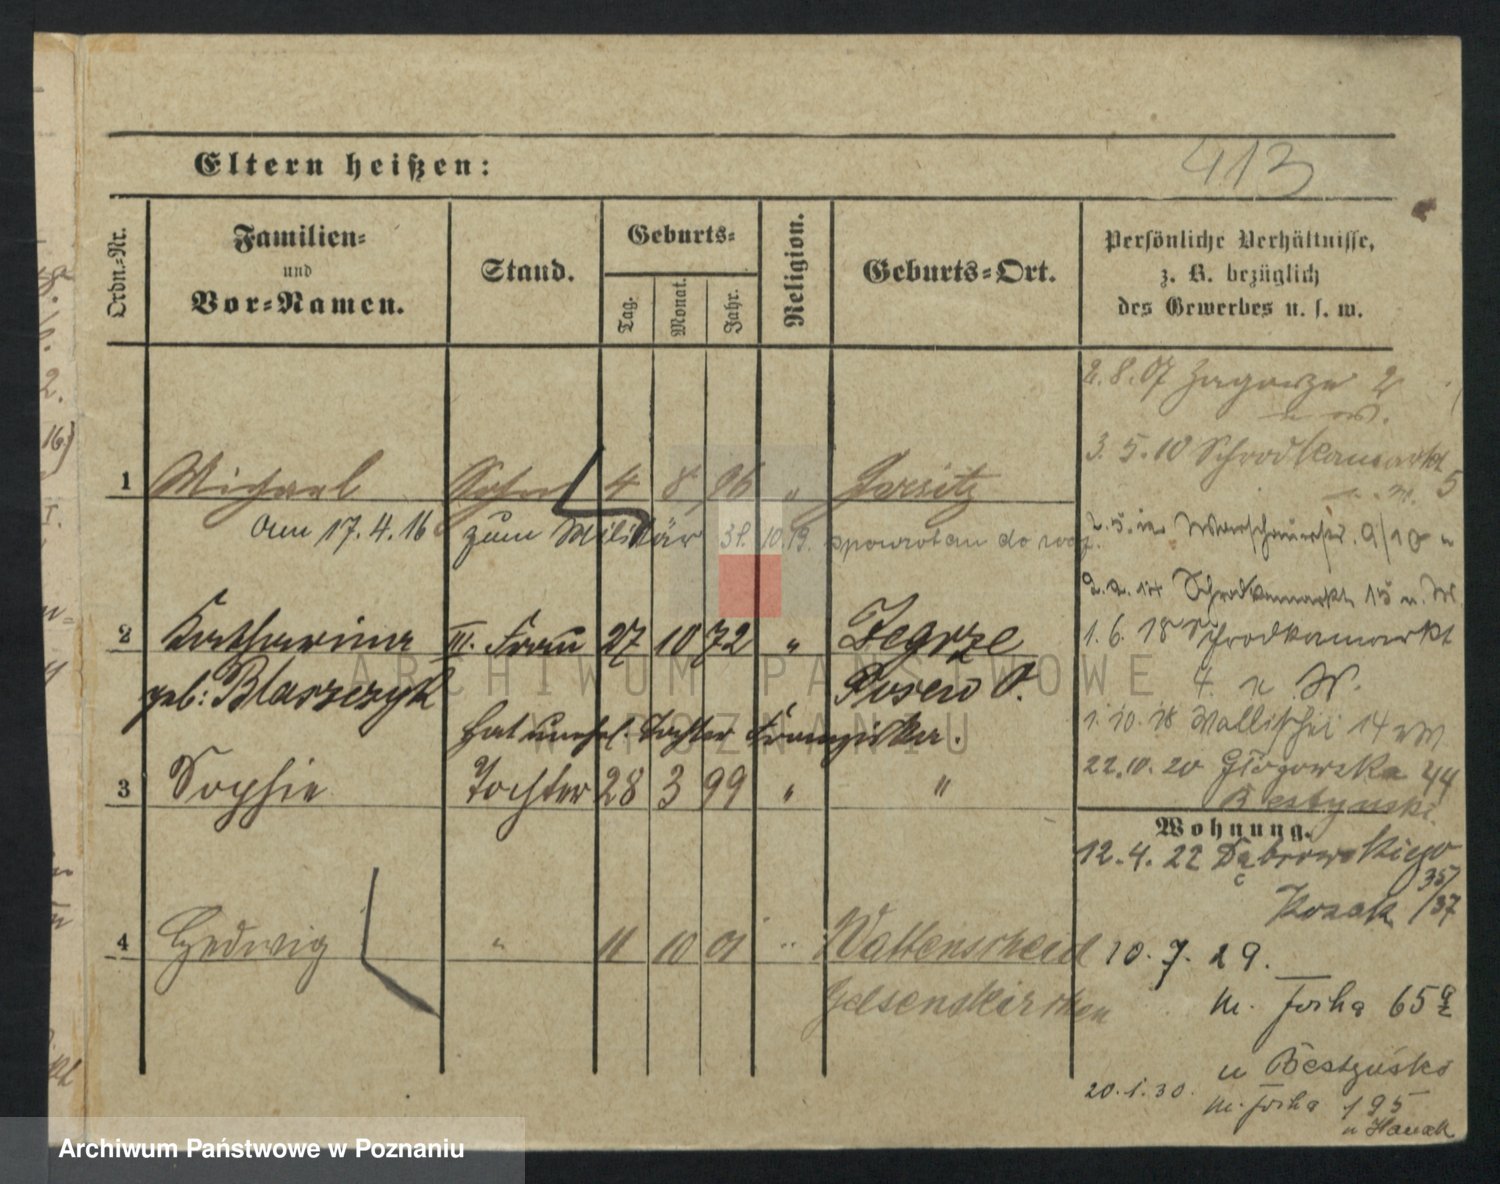 413
Eltern heißen:
Ordn.-Nr.
Familien-
und
Vor-Namen.
Stand.
Geburts-
Tag.
Monat.
Jahr.
Religion.
Geburts-Ort.
Persönliche Verhältnisse,
z. B. bezüglich
des Gewerbes u. s. w.
2.8.07 Zagorze 2
u. W.
3.5.10 Schrodkamarkt 5
1 Michael Sohn 4 8 96 " Goritz
Am 17.4.16 zum Militär 31.10.19. spowrotem do woj.
9/10 u
Schrodkamarkt 15 u. W.
2 Katharina III. Frau 27 10 72 " Zegrze
geb: Blaszczyk Posen O.
1.6.18 Schrodkamarkt
4. u. W.
hat unehl. Tochter Franziska.
1.10.18 Wallischei 14 u W
3 Sophie Tochter 28 3 99 " "
22.10.20 Głogowska 44
Bestynski
Wohnung.
12.4.22 Dąbrowskiego
35/37
Kozak
4 Hedwig " 11 10 01 " Wattenscheid
Gelsenkirchen
10.7.29.
M. Focha 65
u Bestyńsko
20.1.30. M. Focha 195
u Hanak
ARCHIWUM PAŃSTWOWE
W POZNANIU
Archiwum Państwowe w Poznaniu